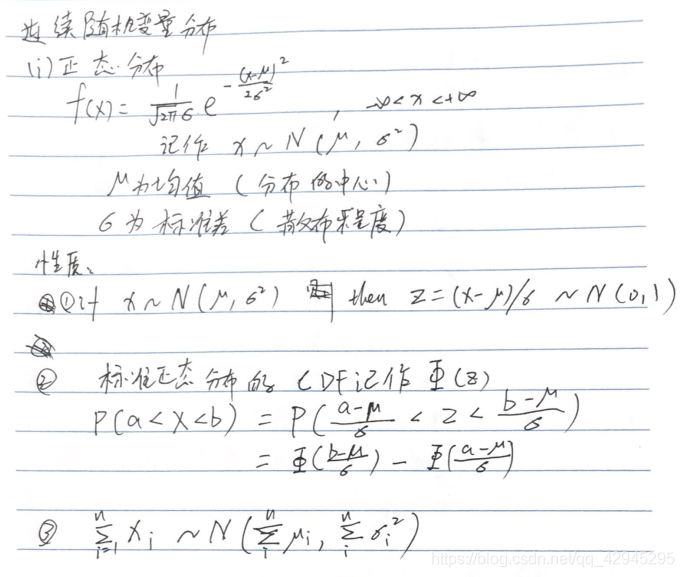 连续随机变量分布
(i) 正态分布
f(x) = 1/√2πσ e^-(x-μ)²/2σ² , -∞ < x < +∞
记作 x ~ N(μ, σ²)
μ为均值 (分布的中心)
σ为标准差 (散布程度)
性质:
① if x ~ N(μ, σ²) then z = (x-μ)/σ ~ N(0,1)
② 标准正态分布的CDF记作 Φ(z)
P(a < X < b) = P((a-μ)/σ < z < (b-μ)/σ)
= Φ((b-μ)/σ) - Φ((a-μ)/σ)
③ ∑_{i=1}^n x_i ~ N(∑_i^n μ_i, ∑_i^n σ_i²)
https://blog.csdn.net/qq_42945295